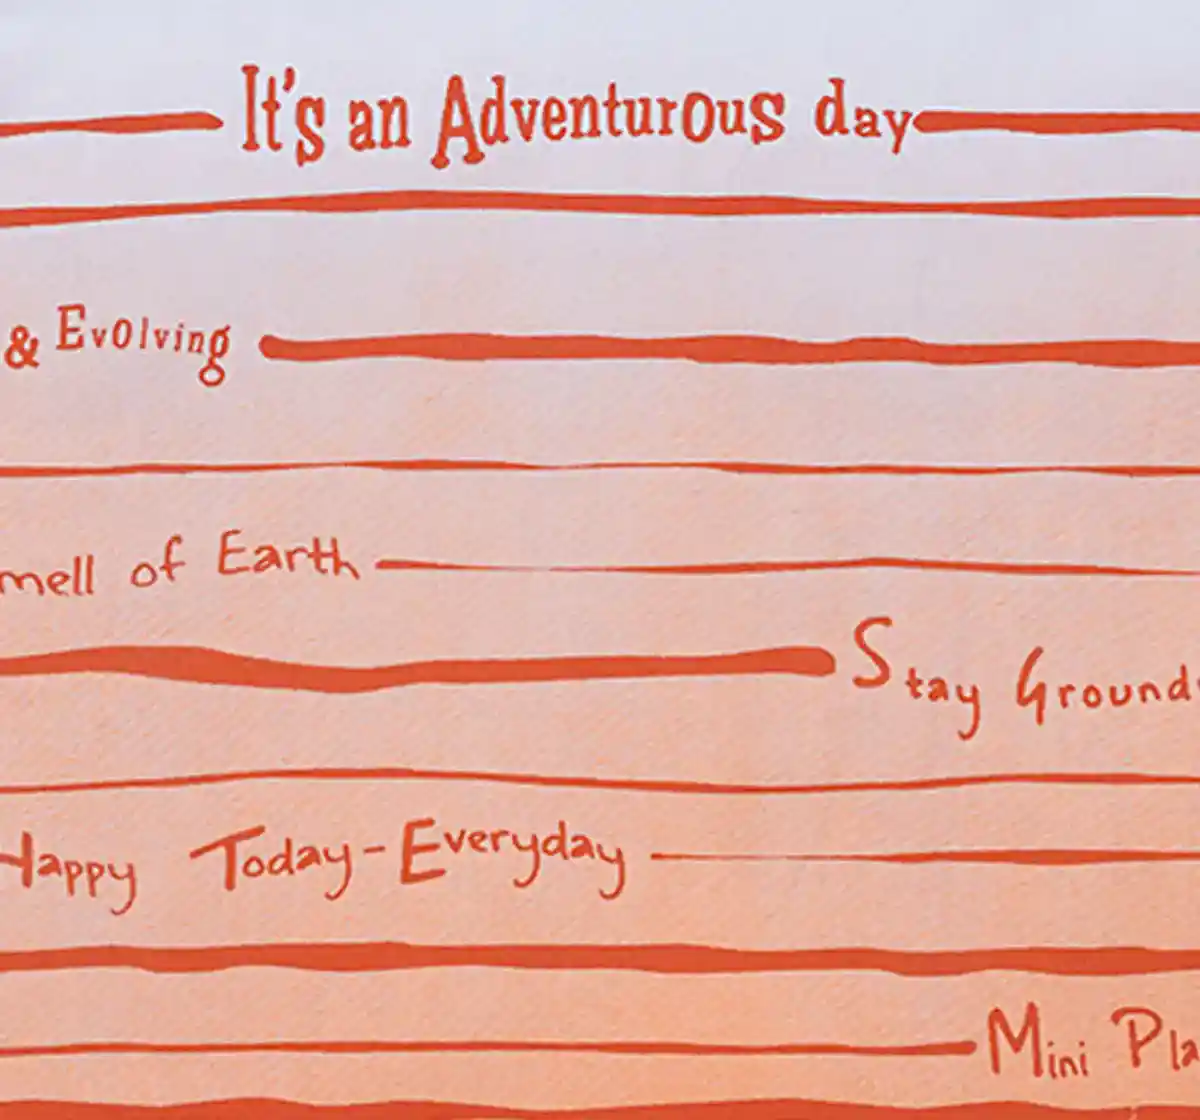 It's an Adventurous day
& Evolving
mell of Earth
Stay Ground
Happy Today-Everyday
Mini Pla